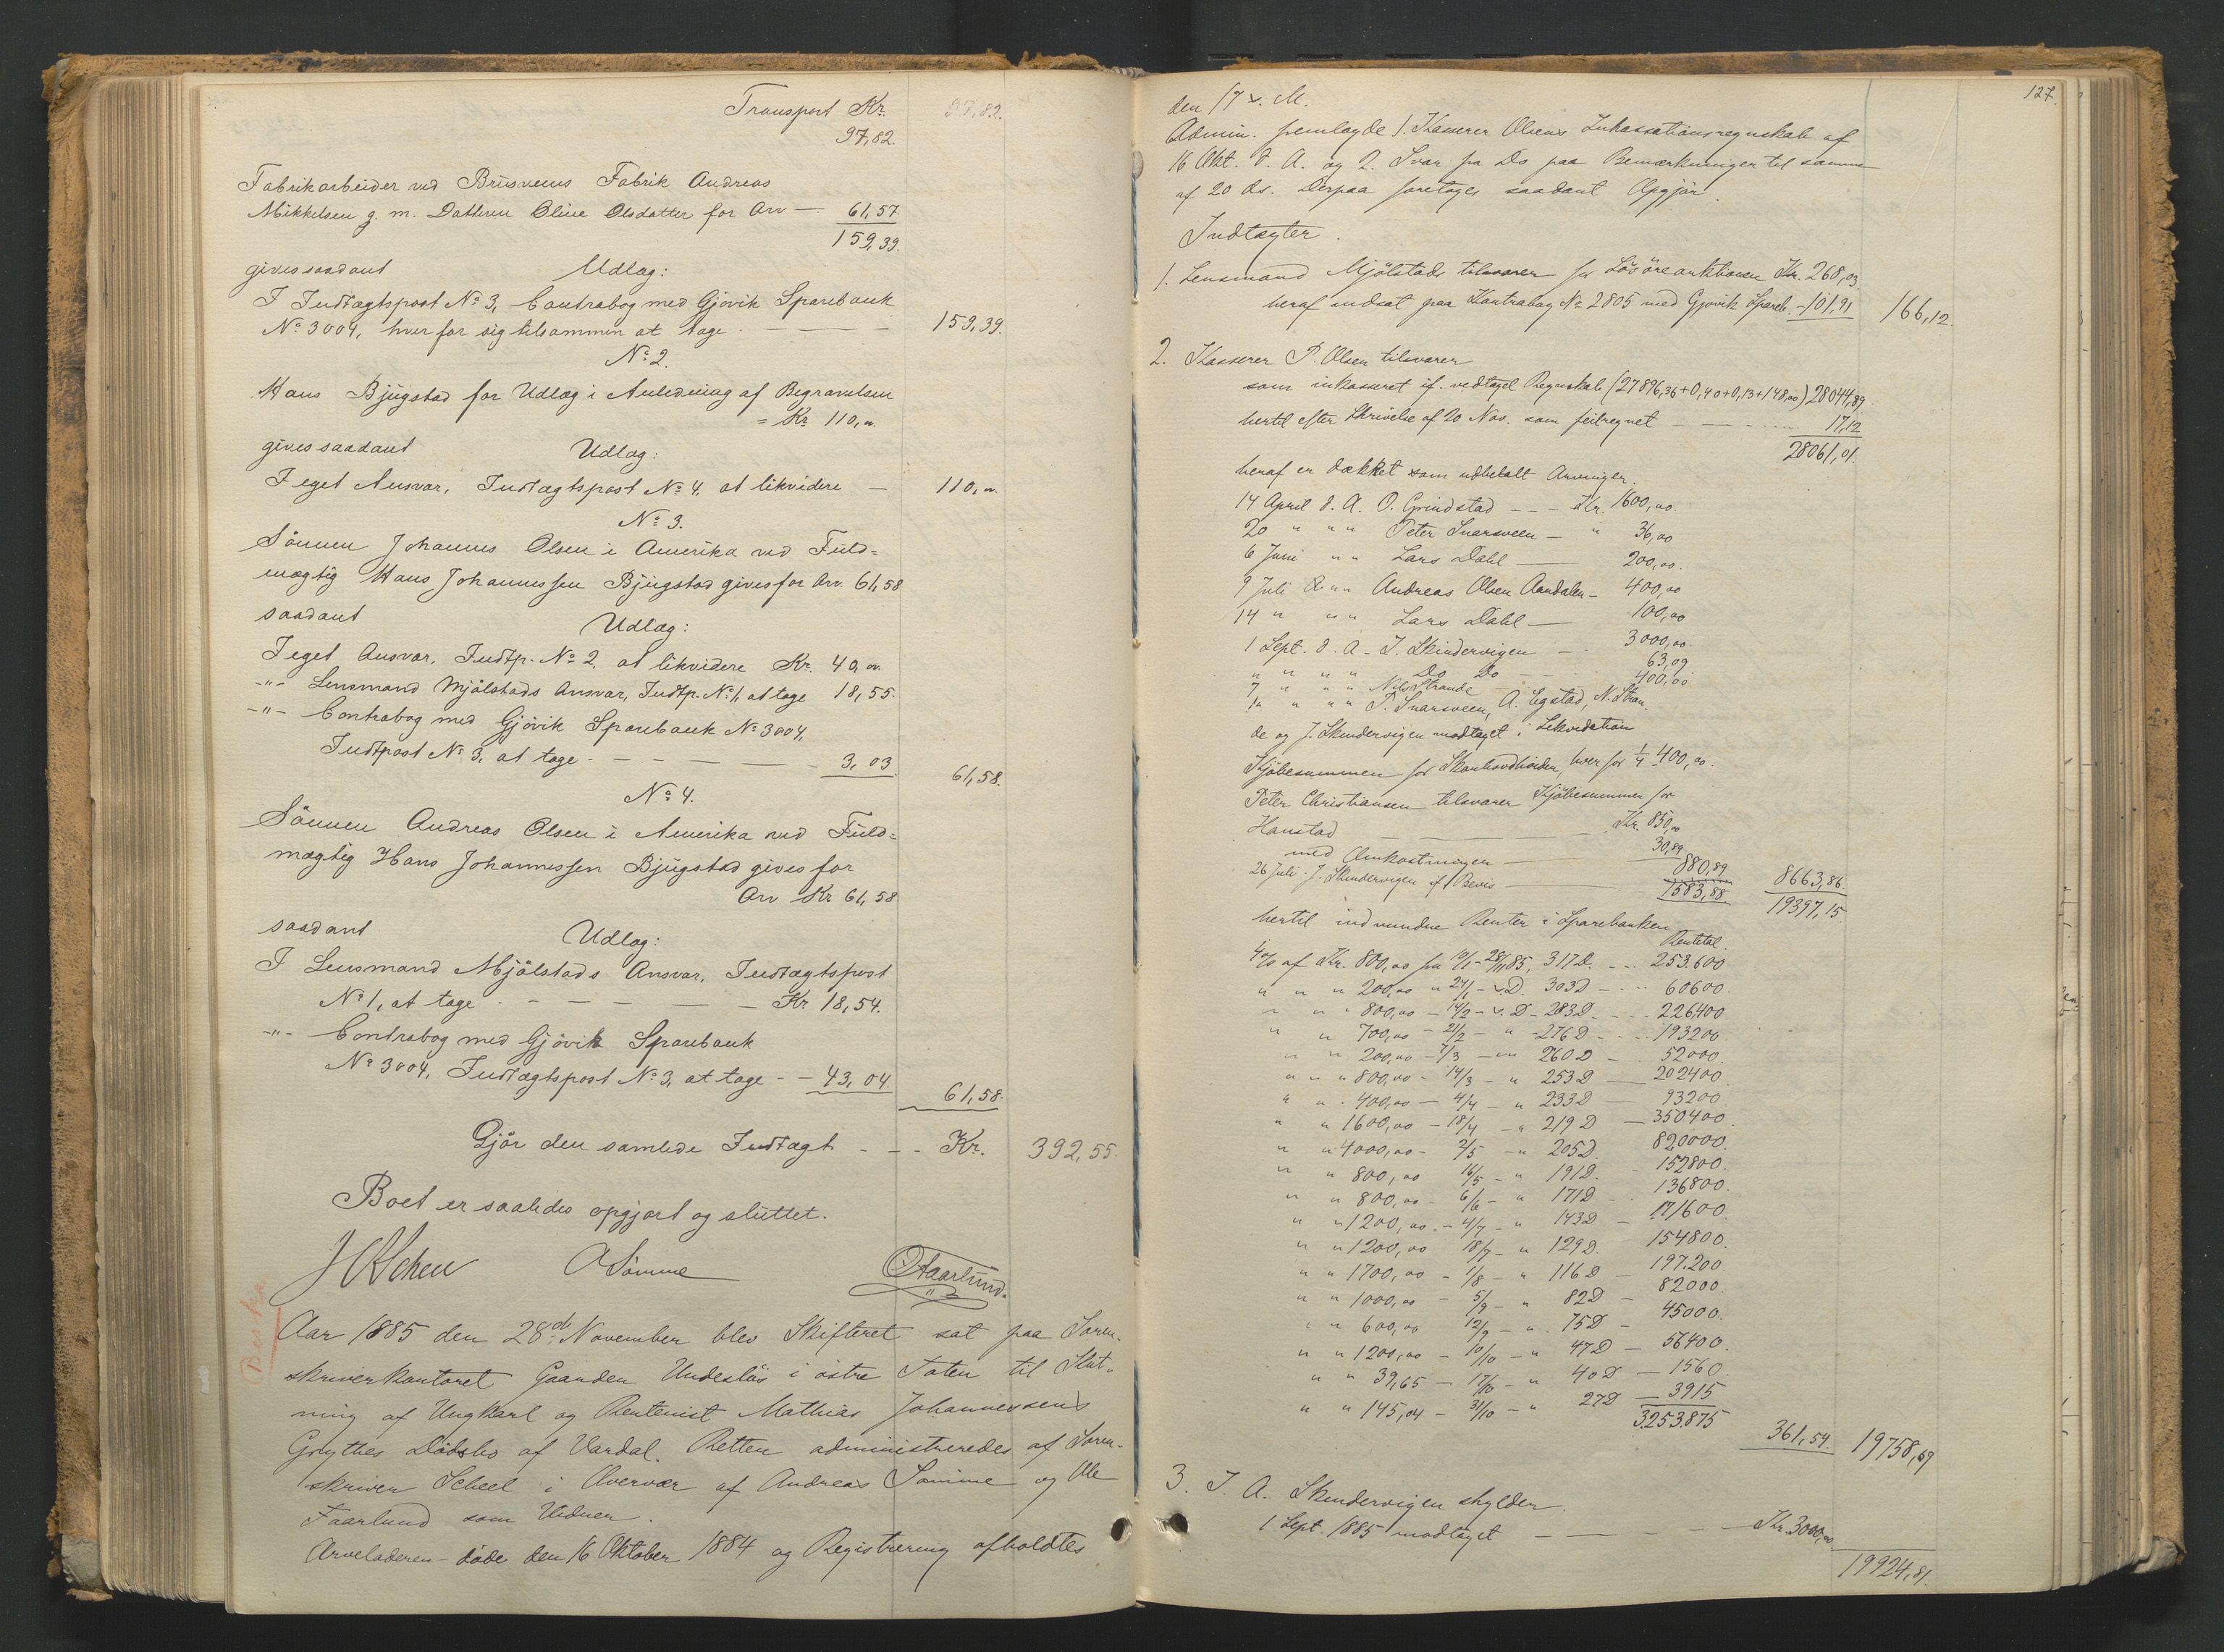 Transport Kr. 97,82.
97,82.
Fabrikarbeider ved Brusveens Fabrik Andreas
Mikkelsen g. m. Datteren Oline Olsdatter for Arv — 61,57.
159,39.
gives saadant Udlæg:
I Indtægtspost No 3, Contrabog med Gjövik Sparebank
No 3004, hver for sig tilsammen at tage — — — 159,39.
No 2.
Hans Bjugstad for Udlæg i Anledning af Begravelsen
= Kr 110,00
gives saadant Udlæg:
I eget Ansvar, Indtægtspost No 4, at likvidere — 110,00
No 3.
Sönnen Johannes Olsen i Amerika ved Fuld=
mægtig Hans Johannessen Bjugstad gives for Arv. 61,58
saadant Udlæg:
I eget Ansvar, Indtp. No 2, at likvidere Kr. 40,00
-"- Lensmand Mjölstads Ansvar, Indtp. No 1, at tage 18,55.
-"- Contrabog med Gjövik Sparebank No 3004,
Indtpost No 3, at tage - — — — — 3,03. 61,58.
No 4.
Sönnen Andreas Olsen i Amerika ved Fuld=
mægtig Hans Johannessen Bjugstad gives for
Arv Kr 61,58
saadant Udlæg:
I Lensmand Mjölstads Ansvar, Indtægtspost
No 1, at tage - — — — — Kr 18,54.
-"- Contrabog med Gjövik Sparebank
No 3004, Indtægtspost No 3, at tage - — 43,04. 61,58.
Gjör den samlede Indtægt - — - Kr. 392,55.
Boet er saaledes opgjort og sluttet.
A Sömme O Faarlund.
Aar 1885 den 28de November blev Skifteret sat paa Soren-
skriverkontoret Gaarden Undeslös i östre Toten til Slut-
ning af Ungkarl og Rentenist Mathias Johannessens
Grythes Dödsbo af Vardal. Retten administreredes af Soren-
skriver Scheel i Overvær af Andreas Sömme og Ole
Faarlund som Vidner.
Arveladeren döde den 16 Oktober 1884 og Registrering afholdtes
127.
den 17 s. M.
Admin. fremlagde 1. Kasserer Olsens Inkassationsregnskab af
16 Okt. d. A. og 2. Svar fra Do paa Bemærkninger til samme
af 20 ds. Derpaa foretoges saadant Opgjör.
Indtægter.
1. Lensmand Mjölstads tilsvarer for Lösöreauktionen Kr. 268,03
heraf indsat paa Kontrabog No 2805 med Gjövik Spareb. - 101,91 166,12.
2. Kasserer P. Olsen tilsvarer
som inkasseret if. vedtaget Regnskab (27896,36+0,40+0,13+148,00) 28044,89.
hertil efter Skrivelse af 20 Nov. som feilregnet — — — 17,12
28061,01.
heraf er dækket som udbetalt Arvinger.
14 April d. A. O. Grindstad - - - Kr. 1600,00.
20 " " " Peter Snarsveen — " 36,00
6 Juni " " Lars Dahl — 200,00.
9 Juli " " Andreas Olsen Aandalen - 400,00
14 " " " Lars Dahl — 100,00
1 Sept. d. A - J. Skindervigen — 3000,00.
" " " " Do Do - - - 63,09
7 " " " Nils Strande - 400,00
" " " P. Snarsveen, A. Egstad, N. Stran-
de og J. Skindervigen modtaget i Likvidation
Kjöbesummen for hver for 1/4 400,00.
Peter Christiansen tilsvarer Kjöbesummen for
Hanstad — — — Kr. 850,00
med Omkostninger — 30,89
880,89
26 Juli J. Skindervigen if. Bevis — 1583,88 8663,86.
19397,15.
hertil indvundne Renter i Sparebanken
Rentetal.
4% af Kr. 800,00 fra 10/1-28/11 85, 317D. - - 253.600
" " " 200,00 " 24/1 - s.D. 303D - - - 60600.
" " " 800,00 - 14/2 - s. D - 283D - - - 226400
" " 700,00 - 21/2 - " - 276D - - - 193200.
" " 200,00 - 7/3 - " 260D - - 52000.
" " " 800,00 - 14/3 - " 253D — 202400
" " 400,00 - 4/4 - " 233D — 93200
" " 1600,00 - 18/4 - " 219D — 350400
" " 4000,00 - 2/5 - " 205D. 820000.
" " 800,00 16/5 - " 191D. - 152800.
" " 800,00 - 6/6 - " 171D - 136800.
" " 1200,00 - 4/7 - " 143D - 171600.
" " 1200,00 18/7 - " 129D. 154800.
" " 1700,00 - 1/8 - " 116D — 197.200
" " 1000,00 - 5/9 - " 82D - 82000.
" " 600,00 12/9 - " 75D - 45000.
" " 1200,00 - 10/10 - " 47D — 56400.
" " 39,65 - 17/10 - " 40D — 1560
" " 145,04 - 31/10 - " 27D — 3915
3.253.875 361,54. 19758,69
3. J. A. Skindervigen skylder.
1 Sept. 1885 modtaget — — — — Kr. 3000,00.
19924,81.